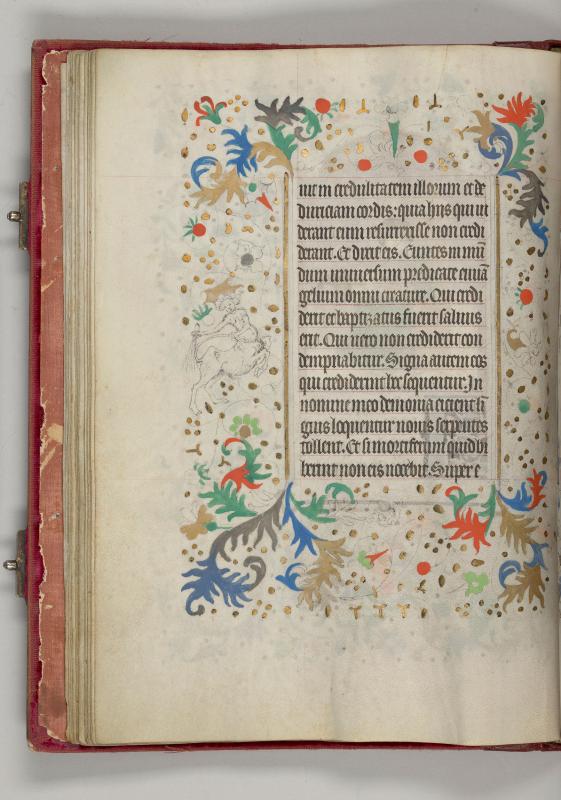 uit in credulitatem illorum et de
duriciam cordis: quia hiis qui vi
derant eum resurrexisse non credi
derant. Et dixit eis. Euntes in mū
dum universum predicate euuā
gelium omni creature. Qui credi
derit et baptizatus fuerit salvus
erit. Qui vero non crediderit con
dempnabitur. Signa autem eos
qui crediderint hec sequentur. In
nomine meo demonia eicient li
guis loquentur novis serpentes
tollent. Et si mortiferum quid bi
berint non eis nocebit. Super e